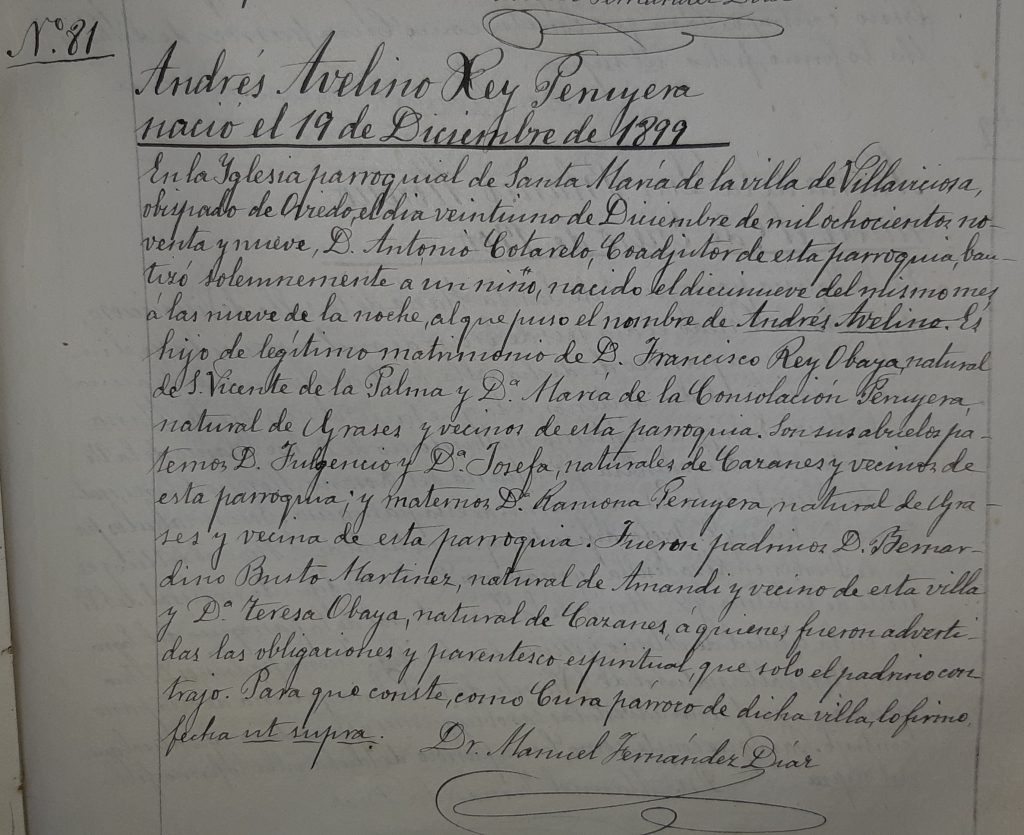 Nº. 81
Andrés Avelino Rey Peruyera
nació el 19 de Diciembre de 1899
En la Yglesia parroquial de Santa María de la villa de Villaviciosa,
obispado de Oviedo, el dia veintiuno de Diciembre de mil ochocientos no-
venta y nueve, D. Antonio Cotarelo, Coadjutor de esta parroquia, bau-
tizó solemnemente a un niño, nacido el diecinueve del mismo mes
á las nueve de la noche, al que puso el nombre de Andrés Avelino. Es
hijo de legítimo matrimonio de D. Francisco Rey Obaya, natural
de S. Vicente de la Palma y Dª. María de la Consolación Peruyera
natural de Grases y vecinos de esta parroquia. Son sus abuelos pa-
ternos D. Fulgencio y Dª Josefa, naturales de Cazanes y vecinos de
esta parroquia; y maternos Dª. Ramona Peruyera, natural de Gra-
ses y vecina de esta parroquia. Fueron padrinos D. Bernar-
dino Busto Martinez, natural de Amandi y vecino de esta villa
y Dª. Teresa Obaya, natural de Cazanes, á quienes fueron adverti-
das las obligaciones y parentesco espiritual, que solo el padrino con-
trajo. Para que conste, como Cura párroco de dicha villa, lo firmo,
fecha ut supra. Dr. Manuel Fernández Diaz